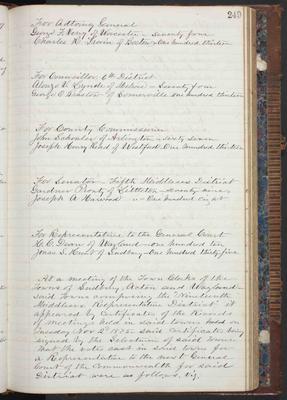 249
For Attorney General
George F. Verry of Worcester - Seventy four
Charles R. Train of Boston One hundred thirteen
For Councillor 6th District
Alonzo V. Lynde of Melrose - Seventy four
George O. Brastow of Somerville One hundred thirteen
For County Commissioner
John Schouler of Arlington - Sixty Seven
Joseph Henry Read of Westford One hundred thirteen
For Senator - Fifth Middlesex District
Gardner Prouty of Littleton - Seventy nine
Joseph A. Harwood " - One hundred eight
For Representative to the General Court
H. C. Dean of Wayland - One hundred ten
Jonas S. Hunt of Sudbury One hundred thirty five
At a meeting of the Town Clerks of the
Towns of Sudbury, Acton and Wayland
said Towns comprising the Nineteenth
Middlesex Representative District it
appeared by Certificates of the Records
of meetings held in said towns held on
Tuesday Nov 2d said Certificates being
signed by the Selectmen of said towns
that the votes cast in said towns for
a Representative to the next General
Court of the Commonwealth for said
District were as follows, viz,